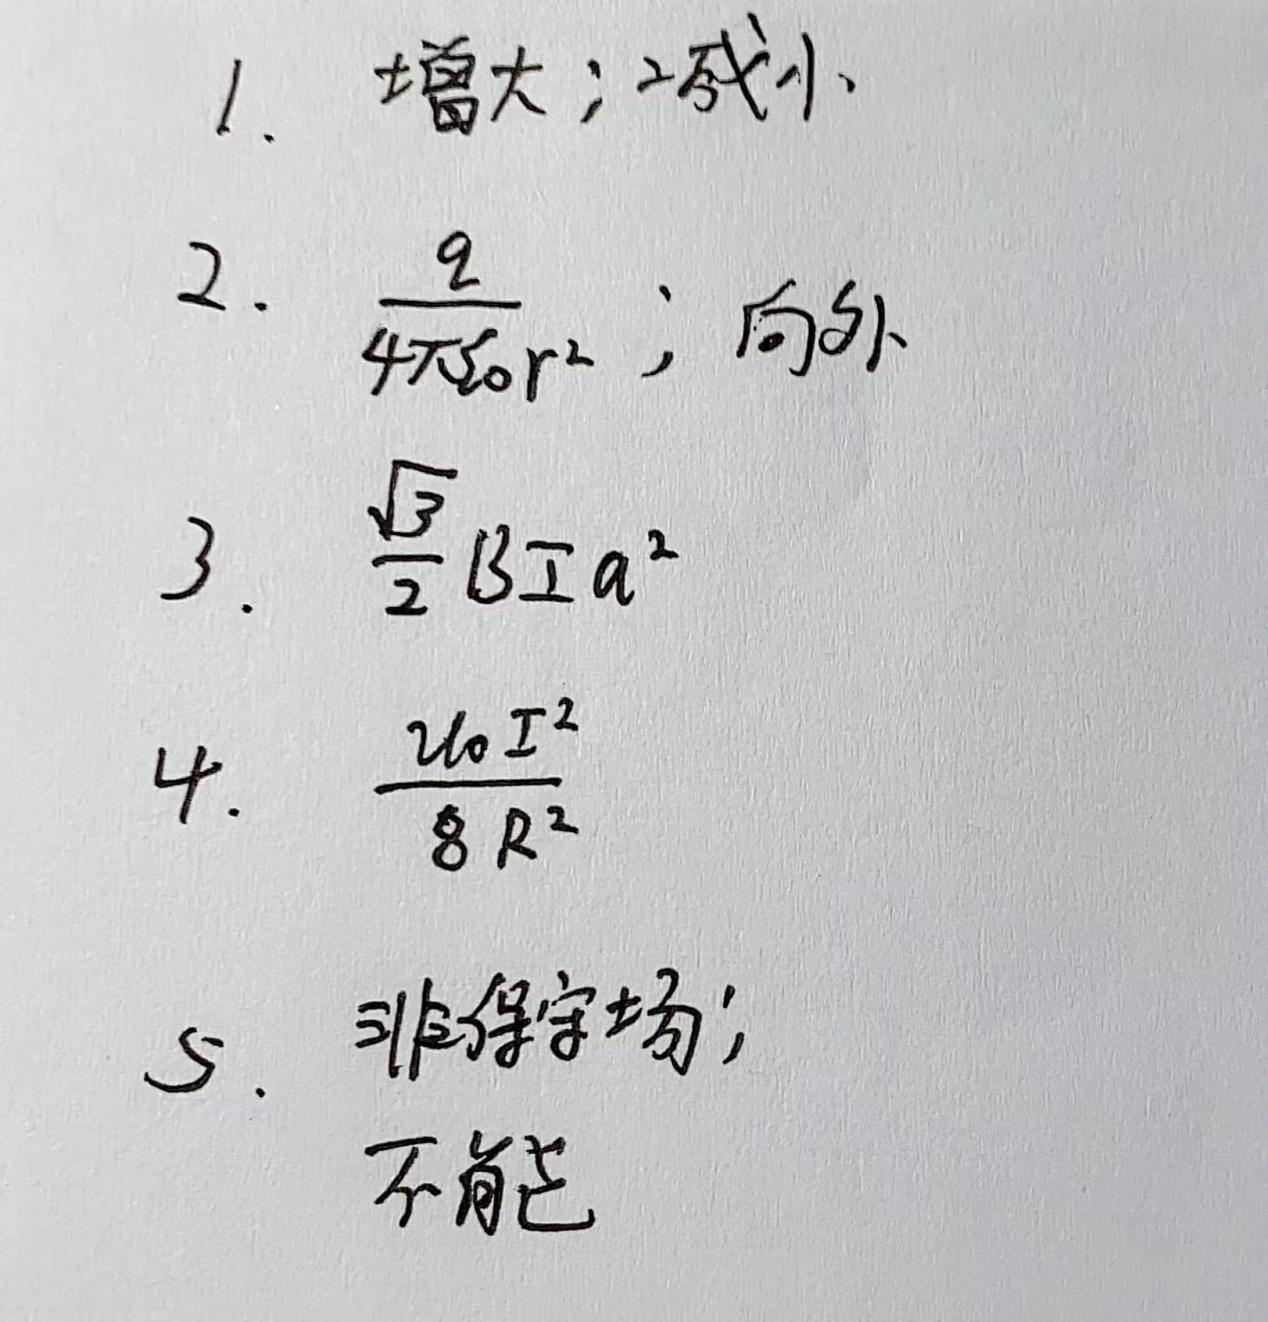 1. 增大；减小
2. \frac{q}{4πε₀r²}；向外
3. \frac{√3}{2}BIa²
4. \frac{μ₀I²}{8R²}
5. 非保守场；
不能